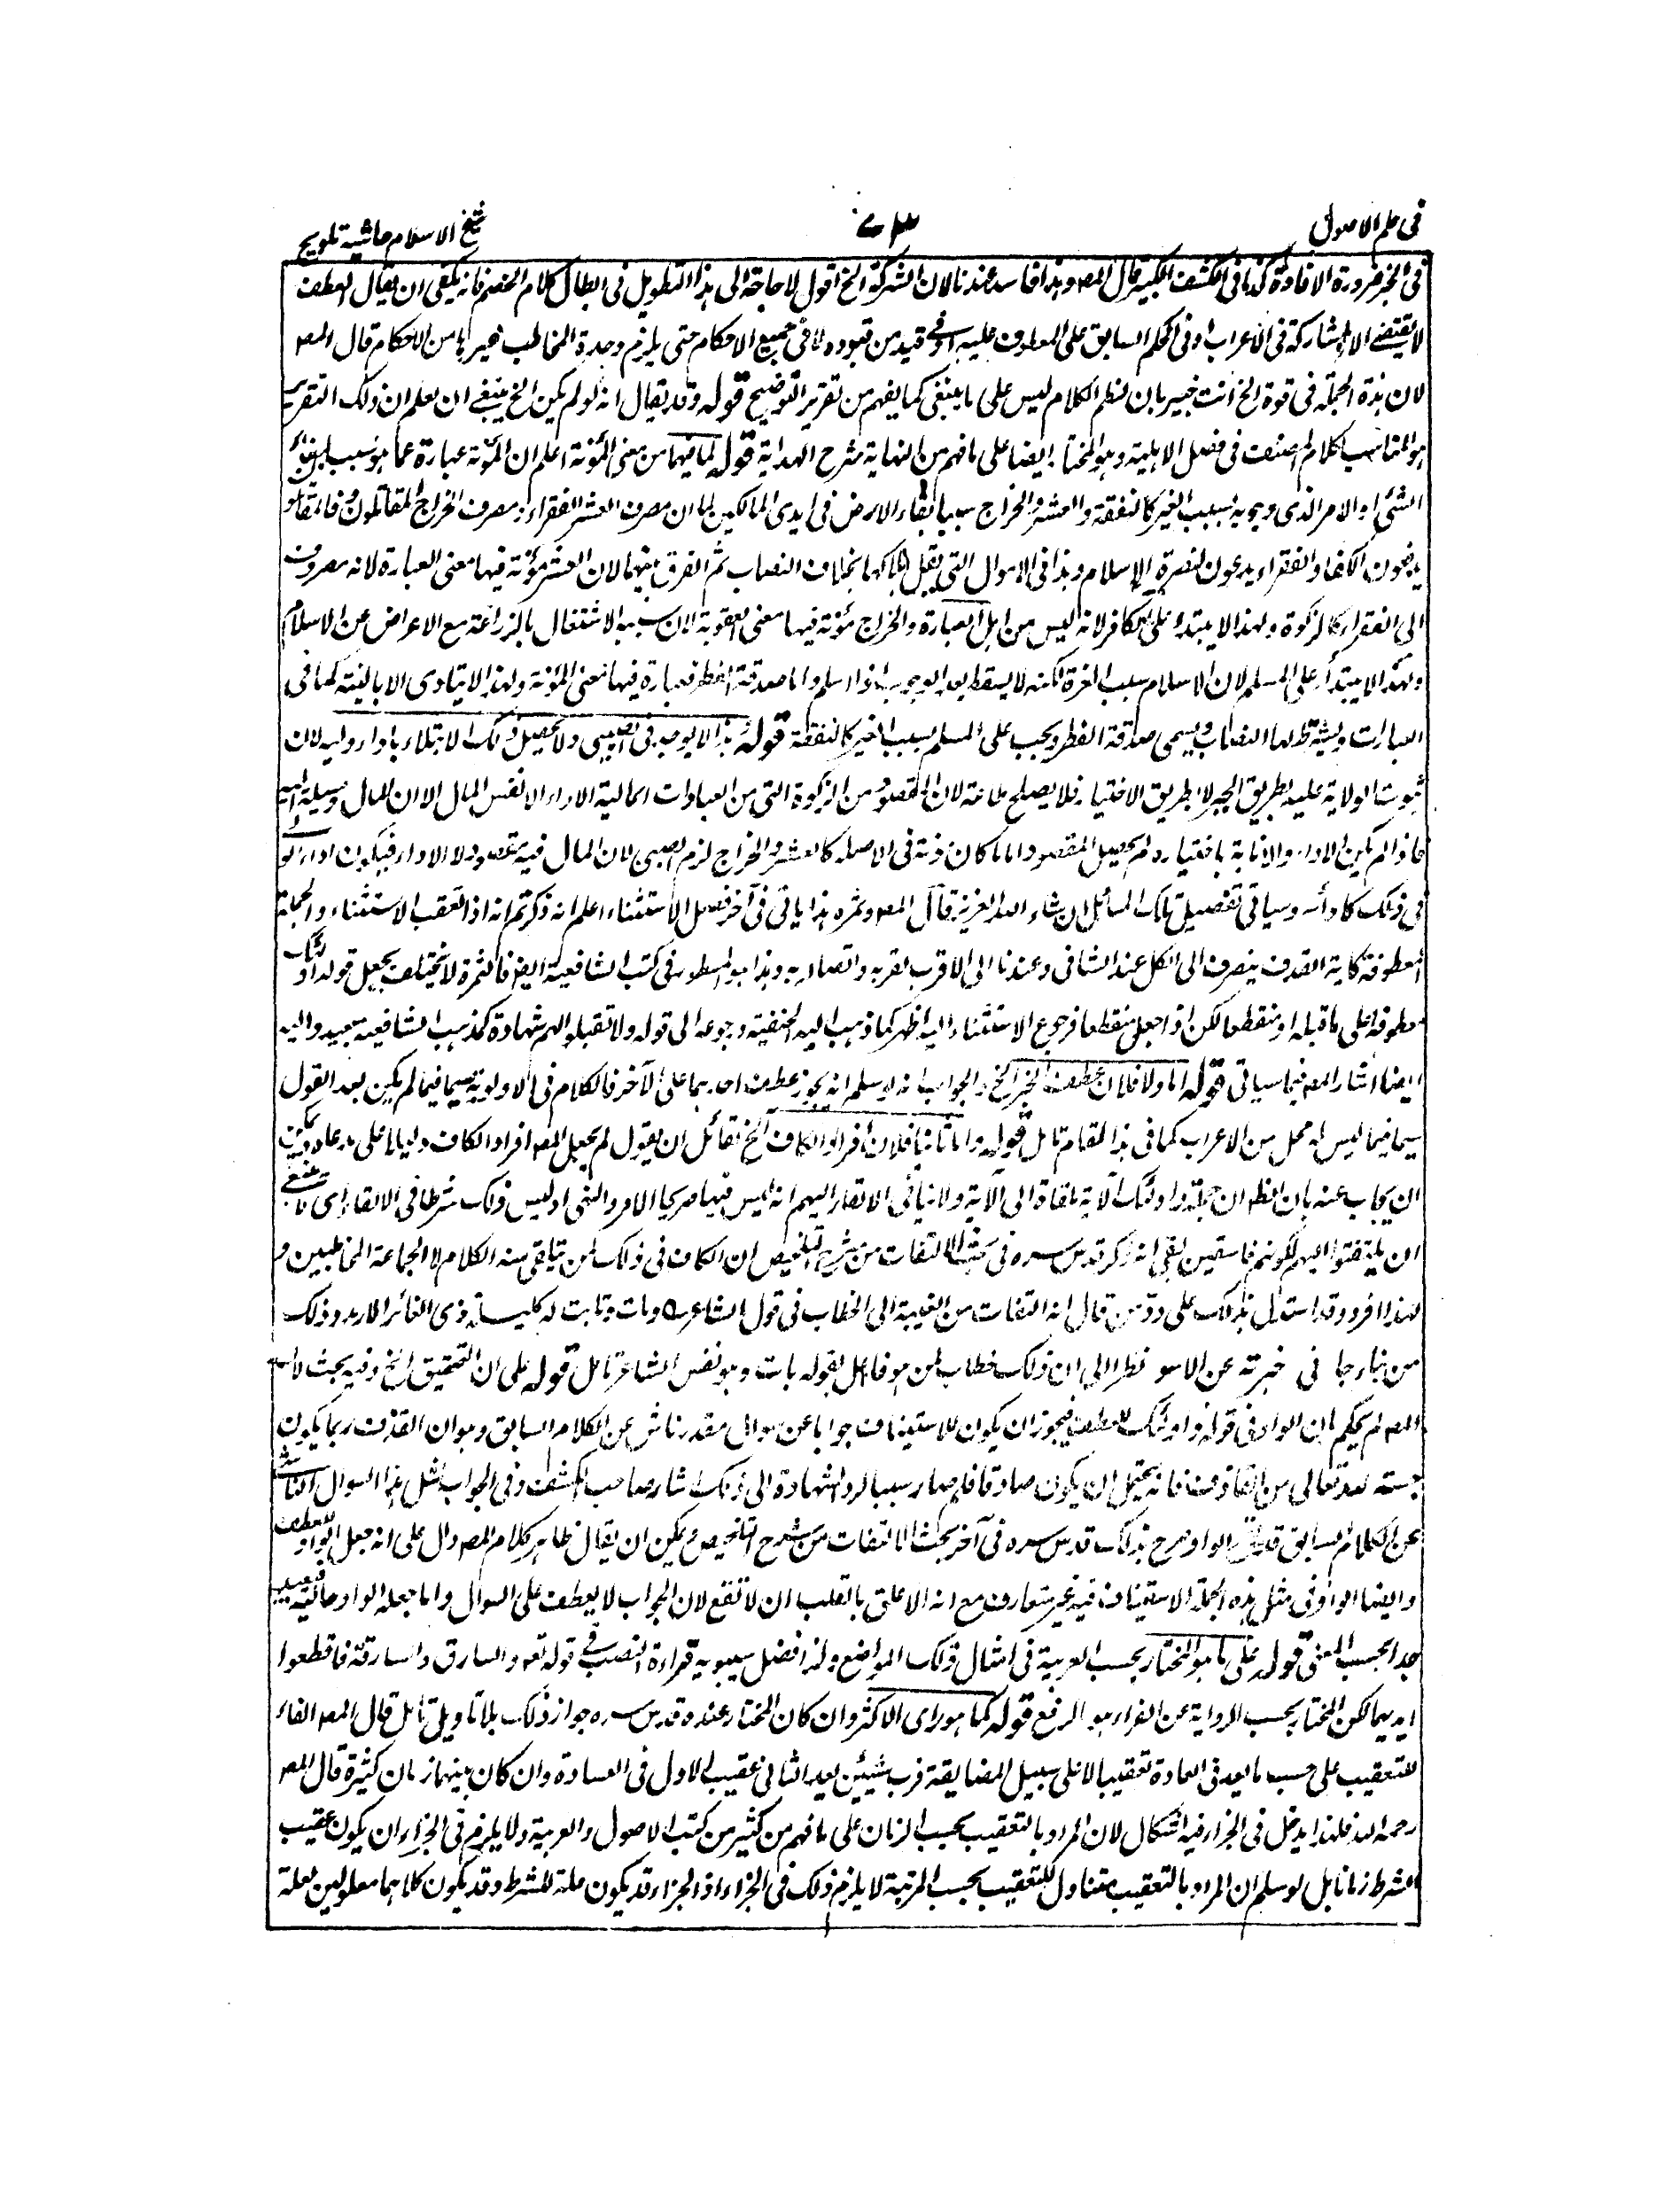 في علم الاصول
٧٣
شيخ الاسلام حاشية تلويح
في الخبر ضرورة الافادة كذا في الكشف الكبير قال المصـ وهذا فاسد عندنا لان الشركة الخ اقول لا حاجة الى هذا التطويل في ابطال كلام الخصم فانه يكفي ان يقال العطف
لا يقتضي الا المشاركة في الاعراب او في الحكم السابق على المعطوف عليه او في قيد من قيوده لا في جميع الاحكام حتى يلزم وحدة المخاطب وغيرها من الاحكام قال المصـ
لان هذه الجملة في قوة الخ انت خبير بان نظم الكلام ليس على ما ينبغي كما يفهم من تقرير التوضيح قوله وقد يقال انه لو لم يكن الخ ينبغي ان يعلم ان ذلك التقرير
هو المناسب لكلام المصنف في فصل الاهلية وهو المختار ايضا على ما فهم من النهاية شرح الهداية قوله لما فيها من معنى المؤنة اعلم ان المؤنة عبارة عما هو سبب لبقاء
الشيء او الامر الذي وجوبه بسبب الغير كالنفقة والعشر والخراج سببا بقاء الارض في ايدي المالكين لما ان مصرف العشر الفقراء ومصرف الخراج المقاتلون فالمقاتلو
يدفعون الكفار والفقراء يدعون لنصرة الاسلام وهذا في الاموال التي بخلاف النصاب ثم الفرق بينهما لان العشر مؤنة فيها معنى العبادة لانه مصروف
الى الفقراء كالزكوة ولهذا لا يبتدأ على الكافر لانه ليس من اهل العبادة والخراج مؤنة فيها معنى العقوبة لان سببه الاشتغال بالزراعة مع الاعراض عن الاسلام
ولهذا لا يبتدأ على المسلم لان الاسلام سبب العزة لكنه لا يسقط بعد الوجوب اذا اسلم واما صدقة الفطر فعبادة فيها معنى المؤنة ولهذا لا يتادى الا بالنية كما في
العبادات ويشترط لها النصاب ويسمى صدقة الفطر ويجب على المسلم بسبب الغير كالنفقة قوله هذا لا يوجد في الصبي ولا يحصل ذلك الابتلاء باداء وليه لان
ثبوت الولاية عليه بطريق الجبر لا بطريق الاختيار فلا يصلح طاعة لان المقصود من الزكوة التي من العبادات المالية الاداء لا نفس المال الا ان المال وسيلة اليه
فاذا لم يكن الاداء والانابة باختياره لم يحصل المقصود اما ما كان مؤنة في الاصل كالعشر والخراج لزم الصبي لان المال فيه مقصود لا الاداء فيكون اداء الو
في ذلك كادائه وسياتي تفصيل تلك المسائل ان شاء الله العزيز قال المصـ وثمره هذا ياتي في آخر فصل الاستثناء اعلم انه ذكر ثم انه اذا تعقب الاستثناء والجملة
المعطوفة كآية القذف ينصرف الى الكل عند الشافعي وعندنا الى الاقرب لقربه واتصاله به وهذا هو المسطور في كتب الشافعية ايضا فالثمرة لا تختلف بجعل قوله اولئك
معطوفا على ما قبله او منقطعا لكن اذا جعل منقطعا فرجوع الاستثناء اليه اظهر كما ذهب اليه الحنفية ورجوعه الى قوله ولا تقبلوا لهم شهادة كمذهب الشافعية بعيد واليه
ايضا اشار المصـ فيما سياتي قوله اما اولا فلان عطف الخبر الخ والجواب انه لو سلم انه يجوز عطف احدهما على الآخر فالكلام في الاولوية سيما فيما لم يكن بعد القول
سيما فيما ليس له محل من الاعراب كما في هذا المقام تامل قوله واما ثانيا فلان افراد الكاف الخ لقائل ان يقول لم يجعل المصـ افراد الكاف دليلا على مدعاه ويمكن
ان يجاب عنه بان الظ ان جملة واولئك الآية ملقاة الى الآية ولا ينافي الالقاء اليهم انه ليس فيها صريحا الامر والنهي اذ ليس ذلك شرطا في الالقاء اي لا ينبغي
ان يلتفتوا اليهم لكونهم فاسقين بقي انه ذكر قدس سره في بحث الالتفات من شرح التلخيص ان الكاف في ذلك لمن يتلقى منه الكلام لا لجماعة المخاطبين و
لهذا افرد وقد استدل بذلك على رد من قال انه التفات من الغيبة الى الخطاب في قول الشاعر وبات وباتت له ليلة كليلة ذي العائر الارمد وذلك
من نبأ جاءني وخبرته عن الاسود نظرا الى ان ذلك خطاب لمن هو فاعل لقوله بات وهو نفس الشاعر تامل قوله على ان التحقيق الخ وفيه بحث لان
المصـ لم يحكم بان الواو في قوله واولئك للعطف فيجوز ان يكون للاستيناف جوابا عن سوال مقدر ناش عن الكلام السابق وهو ان القذف ربما يكون
حسبة لله تعالى من القاذف فانه يحتمل ان يكون صادقا فلم صار سببا لرد الشهادة الى ذلك اشار صاحب الكشف وفي الجواب مثل هذا السوال الناشئ
عن الكلام السابق الواو صرح بذلك قدس سره في آخر بحث الالتفات من شرح التلخيص ويمكن ان يقال ظاهر كلام المصـ دال على انه جعل الواو للعطف
وايضا الواو في مثل هذه الجملة الاستينافية غير متعارف مع انه الاعلق بالقلب ان لا تقع لان الجواب لا يعطف على السوال واما جعله الواو حالية فبعيد
جدا بحسب المعنى قوله على ما هو المختار بحسب العربية في امثال ذلك المواضع ولذا فضل سيبويه قراءة النصب في قوله تعـ والسارق والسارقة فاقطعوا
ايديهما لكن المختار بحسب الرواية عن القراء هو الرفع قوله كما هو راى الاكثر وان كان المختار عنده قدس سره جواز ذلك بلا تاويل تامل قال المصـ الفاء
للتعقيب على حسب ما يعد في العادة تعقيبا لا على سبيل المضايقة فرب شيئين يعد الثاني عقيب الاول في العادة وان كان بينهما ازمان كثيرة قال المصـ
رحمه الله فلهذا يدخل في الجزاء فيه اشكال لان المراد بالتعقيب بحسب الزمان على ما فهم من كثير من كتب الاصول والعربية ولا يلزم في الجزاء ان يكون عقيب
الشرط زمانا بل لو سلم ان المراد بالتعقيب متناول للتعقيب بحسب المرتبة لا يلزم ذلك في الجزاء اذ الجزاء قد يكون علة للشرط وقد يكون كلاهما معلولين لعلة